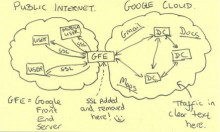 PUBLIC INTERNET.
GOOGLE CLOUD.
USER
USER
USER
SSL
SSL
SSL
GFE
Gmail
DC
Docs
DC
DC
Maps
GFE = Google
Front
End
Server
SSL added
and removed
here! ☺
Traffic in
clear text
here.